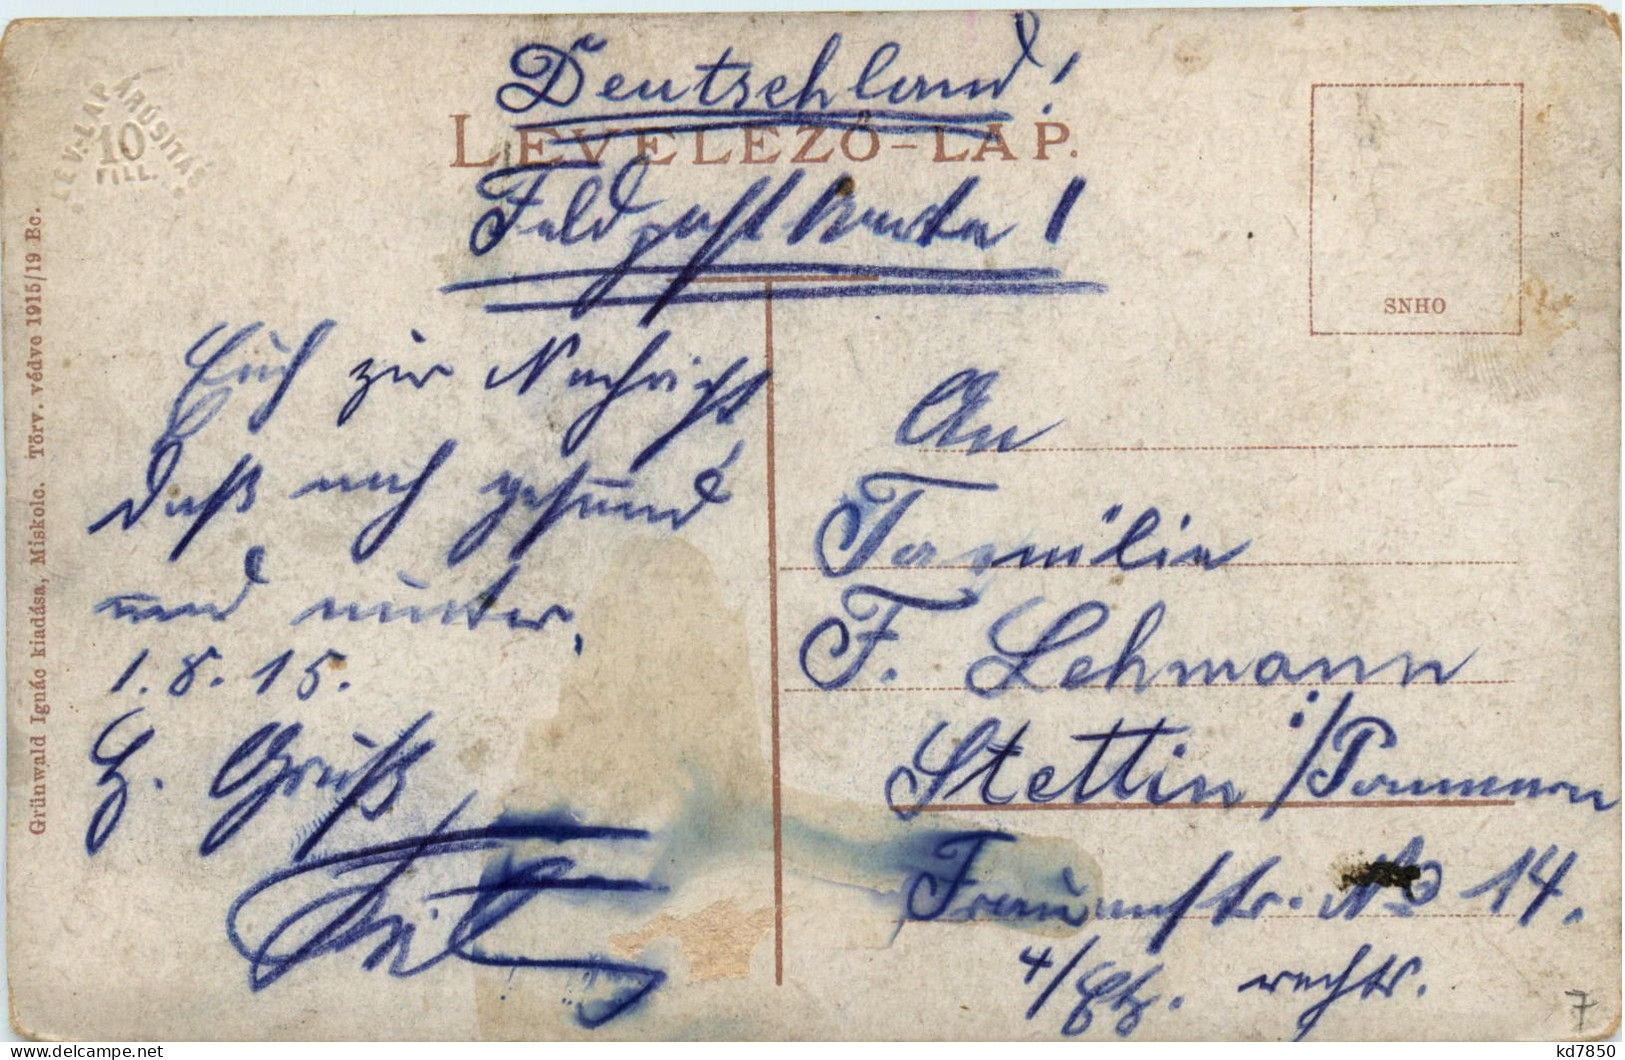 Deutschland!
LEVELEZŐ-LAP.
Feldpostkarte!
LEV.-LAP ÁRÚSITÁS
10
FILL.
SNHO
Grünwald Ignác kiadása, Miskolc. Törv. védve 1915/19 Bc.
Euch zur Nachricht,
daß noch gesund
und munter.
1.8.15.
H. Gruß
An
Familie
F. Lehmann
Stettin i/Pommern
Frauenstr. No 14.
4/Etg. rechts.
7
kd7850